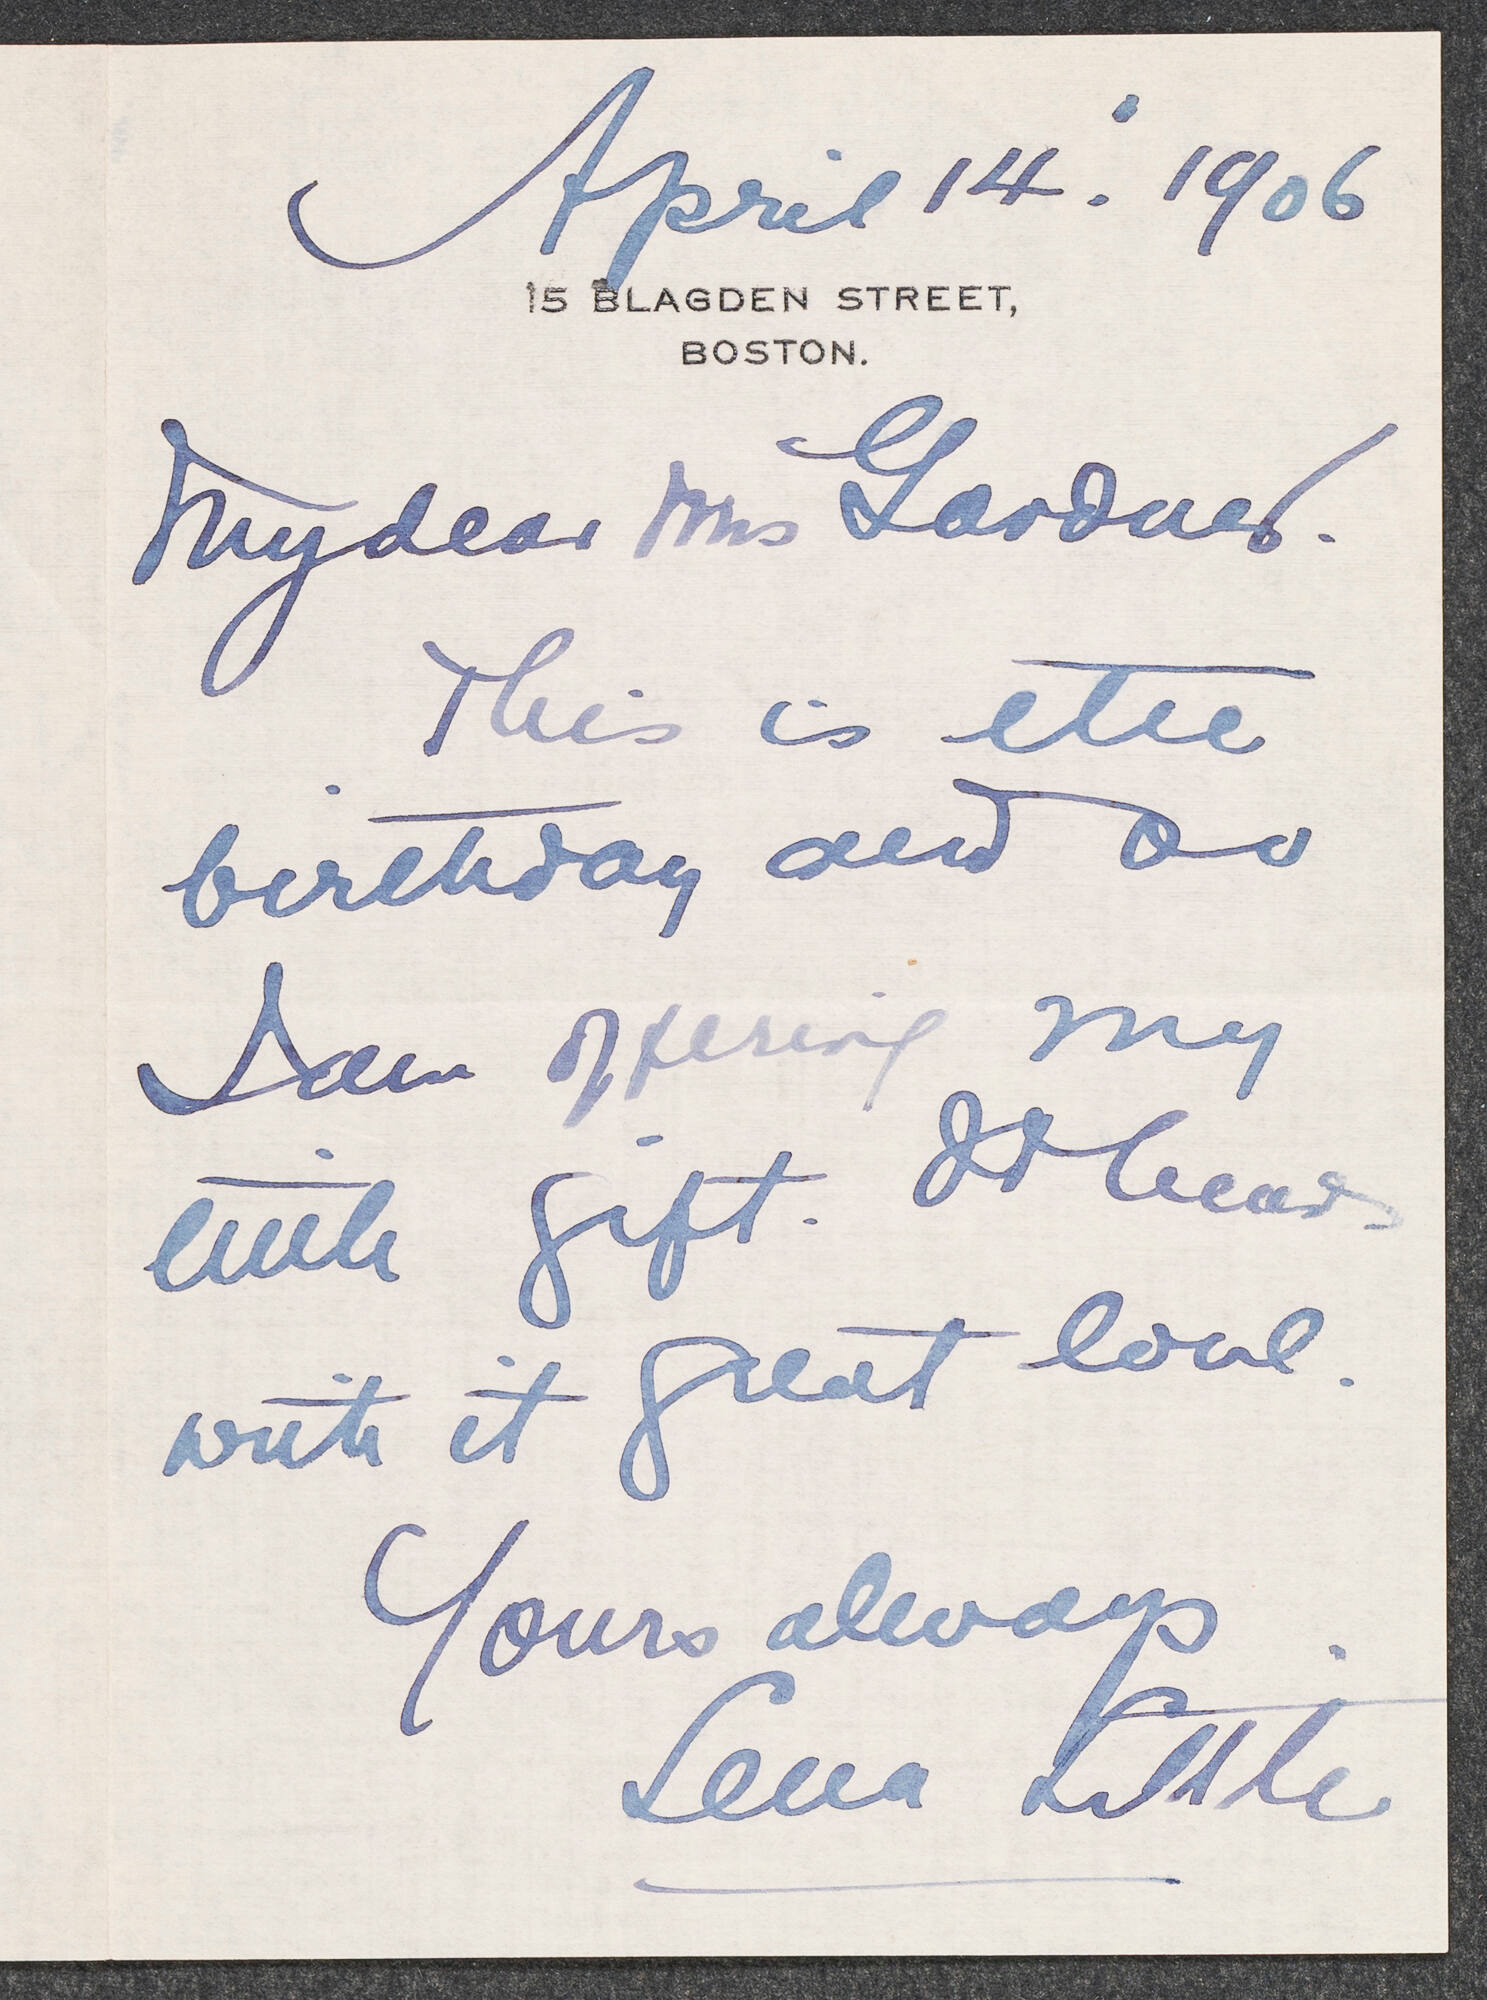 April 14. 1906
15 BLAGDEN STREET,
BOSTON.
My dear Mrs Gardner.
This is the
birthday and so
I am offering my
little gift. It bears
with it great love.
Yours always.
Lena Little